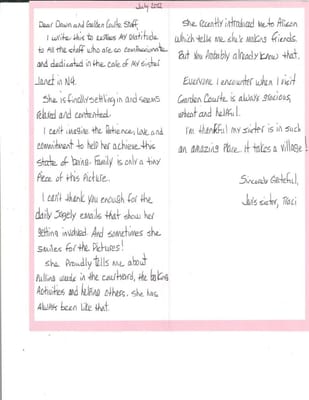 July 2022
Dear Dawn and Garden Courte Staff,
I write this to express my gratitude
to all the staff who are so compassionate
and dedicated in the care of my sister
Janet in N9.
She is finally settling in and seems
relaxed and contented.
I can't imagine the patience, love and
commitment to help her achieve this
state of being. Family is only a tiny
piece of this picture.
I can't thank you enough for the
daily Sagely emails that show her
getting involved. And sometimes she
smiles for the pictures!
She proudly tells me about
pulling weeds in the courtyard, the baking
activities and helping others. She has
always been like that.
She recently introduced me to Alison
which tells me she's making friends.
But you probably already know that.
Everyone I encounter when I visit
Garden Courte is always gracious,
upbeat and helpful.
I'm thankful my sister is in such
an amazing place. It takes a village!
Sincerely Grateful,
Jan's sister, Traci